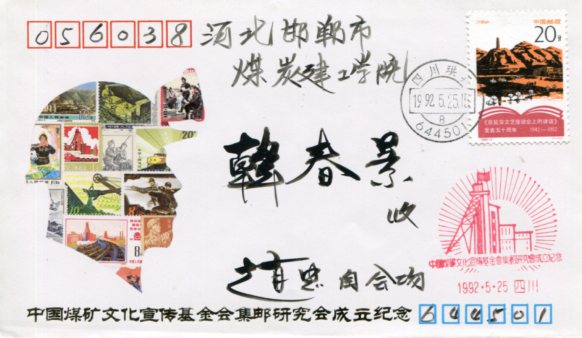 056038
河北邯郸市
煤炭建工学院
韩春景
收
赵忠自会场
中国煤矿文化宣传基金会集邮研究会成立纪念
644501
中国邮政
20分
《在延安文艺座谈会上的讲话》
发表五十周年 1942—1992
四川珙
1992.5.25.15
644501
中国煤矿文化宣传基金会集邮研究会成立纪念
1992·5·25 四川